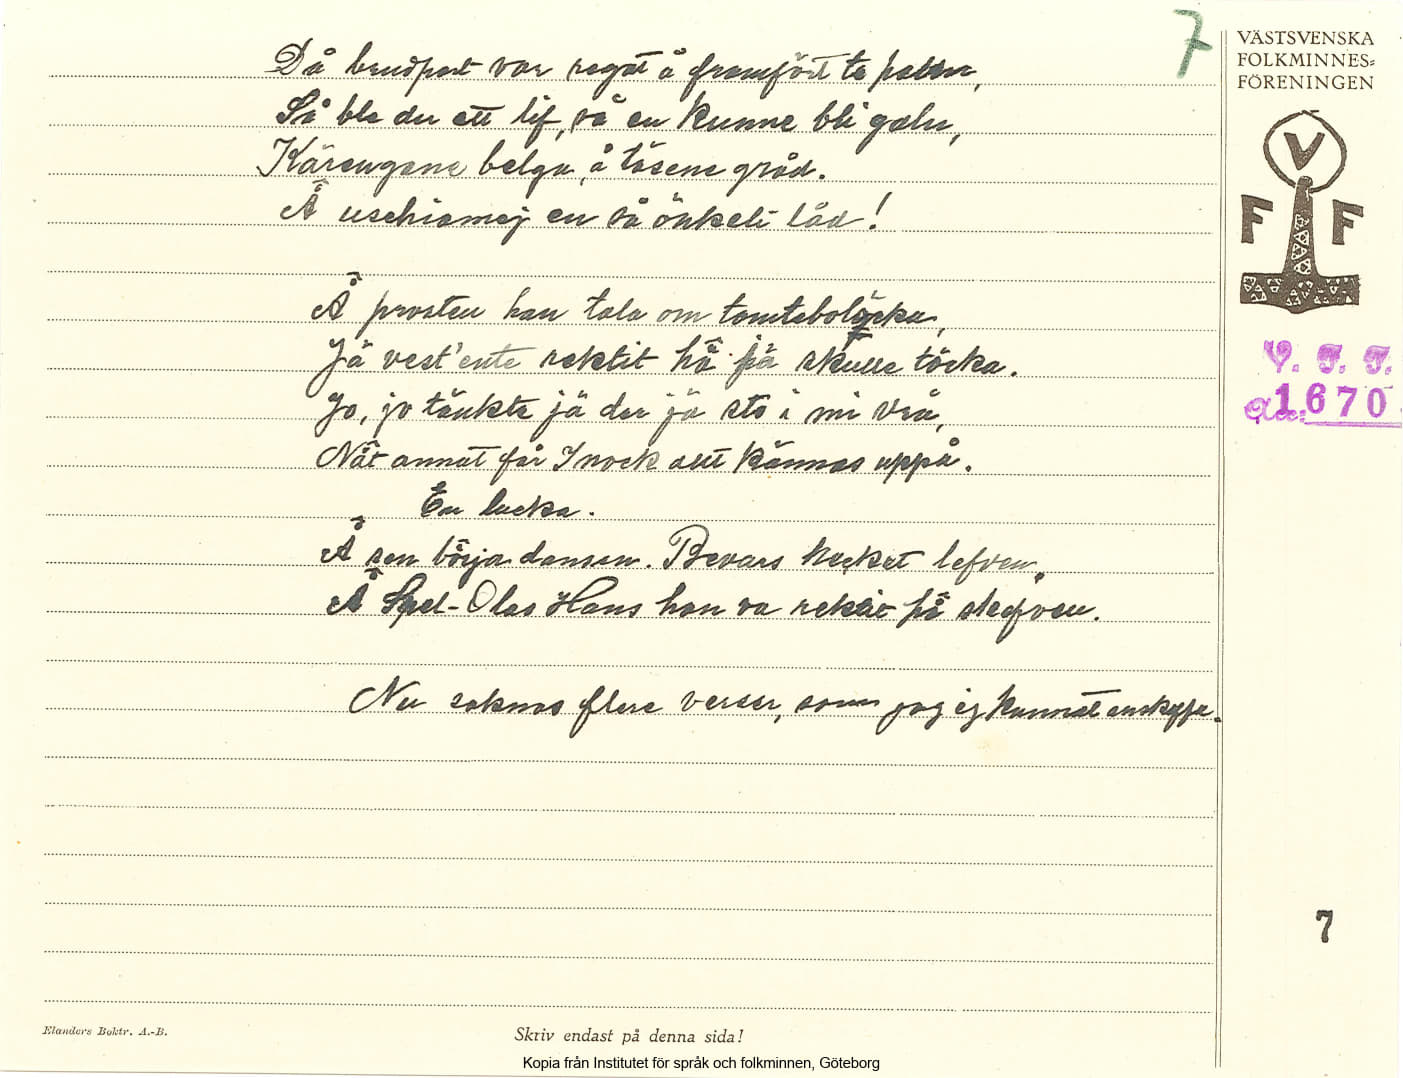 7
VÄSTSVENSKA
FOLKMINNES=
FÖRENINGEN
V
F F
V. F. F.
Acc: 1670
Då brudparet var vegat å framfört te
Så ble der ett lif, så en kunne bli galn,
Kärengane belga, å tösene gråd.
Å uschiamej en så önkeli låd!
Å prosten han tala om tomtebolöcka,
Jä vest' ente rektit hå jä skulle töcka.
Jo, jo tänkte jä der jä sto i mi vrå,
Nåt annat får I nock att kännas uppå.
En lucka.
Å sen börja dansen. Bevars hecket lefven.
Å Spel-Olas Hans han va rektit på
Nu saknas flere verser, som jag ej kunnat anskaffa.
7
Elanders Boktr. A.-B.
Skriv endast på denna sida!
Kopia från Institutet för språk och folkminnen, Göteborg